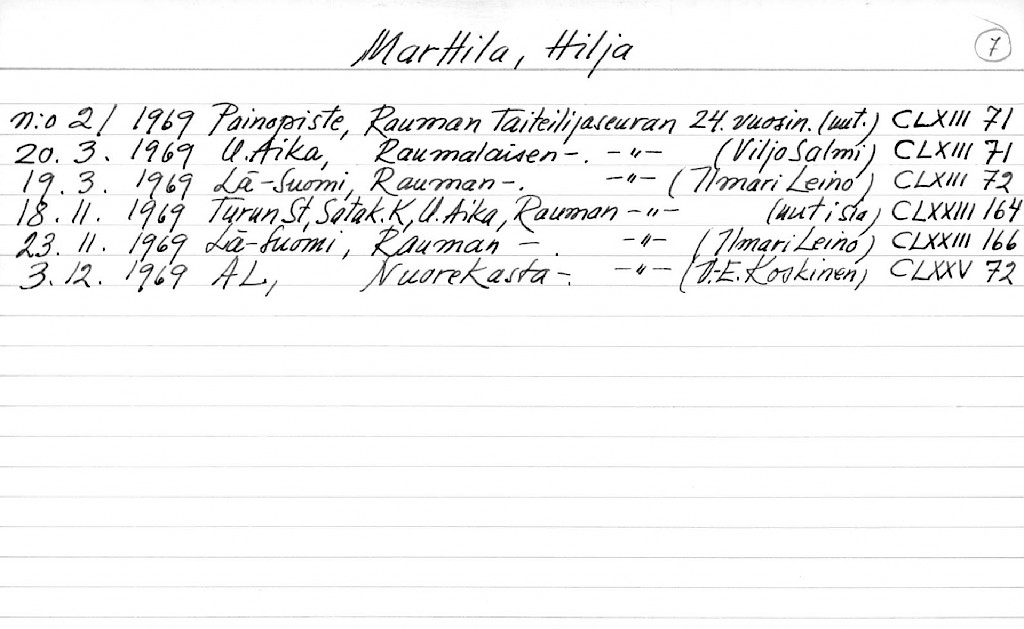 Marttila, Hilja 7
n:o 2/ 1969 Painopiste, Rauman Taiteilijaseuran 24. vuosin. (uut.) CLXIII 71
20. 3. 1969 U. Aika, Raumalaisen -. -"- (Viljo Salmi) CLXIII 71
19. 3. 1969 Lä-Suomi, Rauman -. -"- (Ilmari Leino) CLXIII 72
18. 11. 1969 Turun St, Satak. K, U. Aika, Rauman -"- (uutisia) CLXXIII 164
23. 11. 1969 Lä-Suomi, Rauman -. -"- (Ilmari Leino) CLXXIII 166
3. 12. 1969 AL, Nuorekasta -. -"- (V.E. Koskinen) CLXXV 72